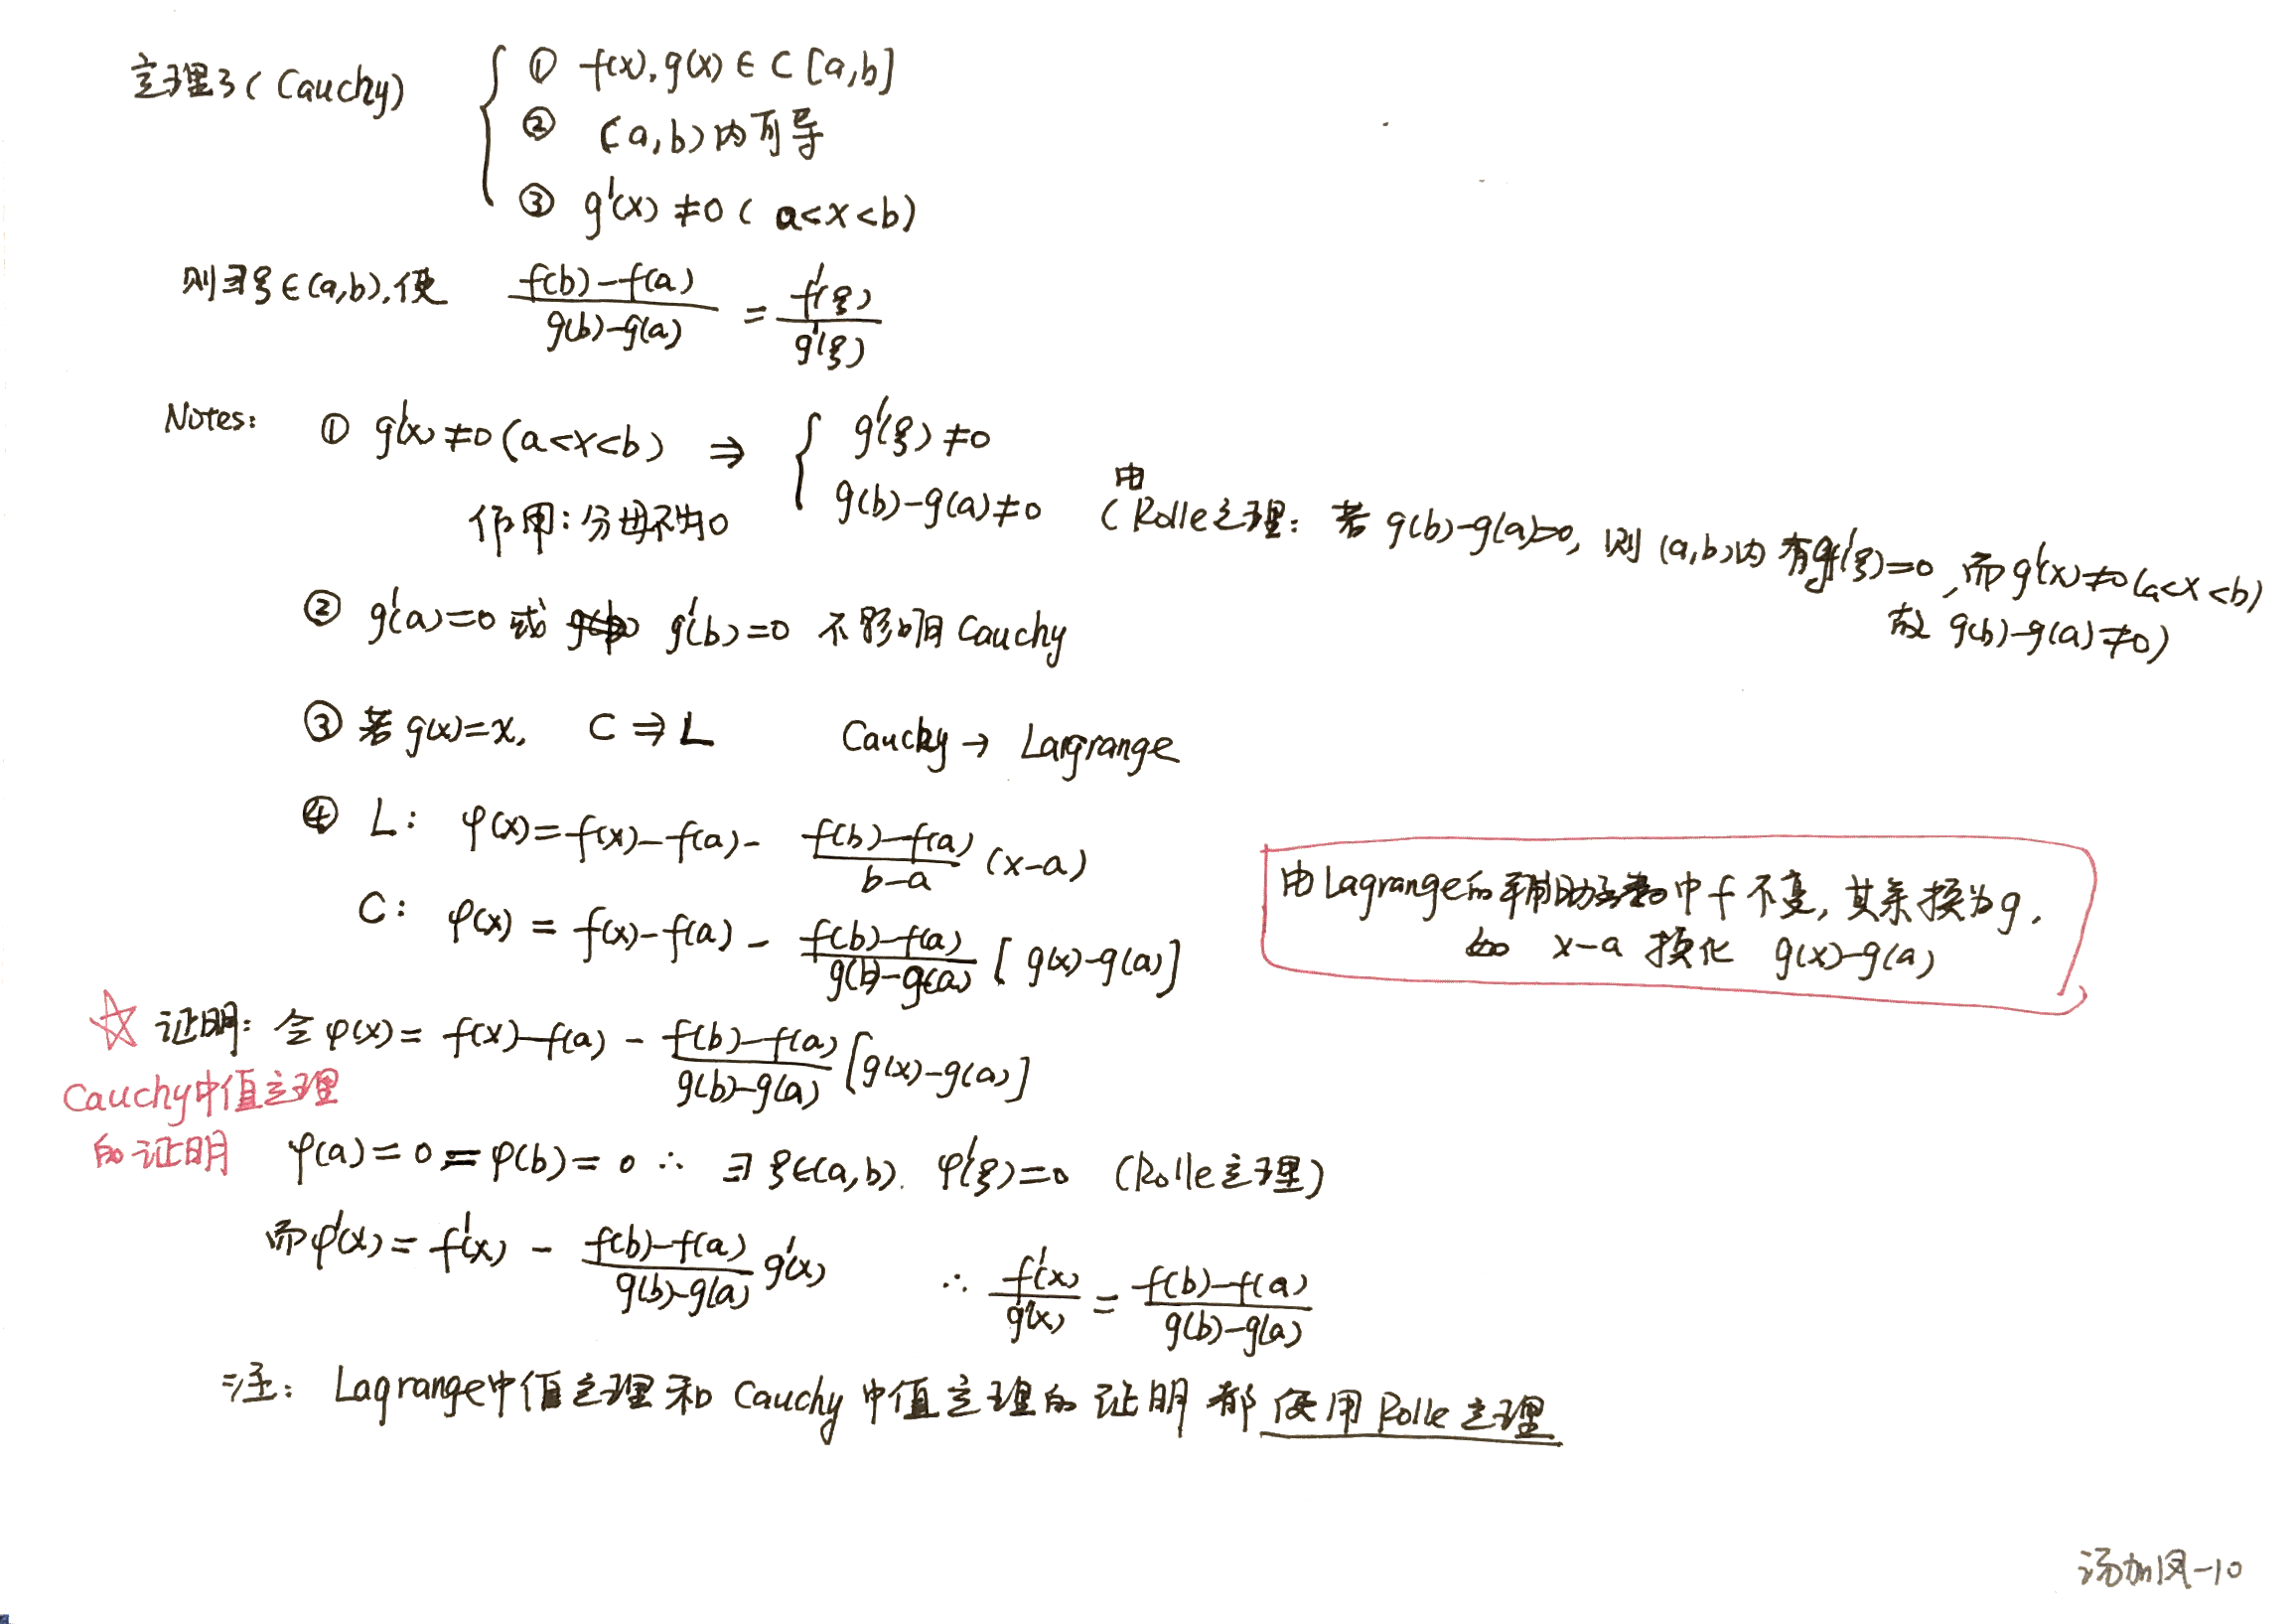 定理3 (Cauchy)
① f(x), g(x) ∈ C [a,b]
② (a,b)内可导
③ g'(x) ≠0 ( a<x<b)
则∃ξ∈(a,b),使 \frac{f(b)-f(a)}{g(b)-g(a)} = \frac{f'(ξ)}{g'(ξ)}
Notes: ① g'(x) ≠0 (a<x<b) ⇒ { g'(ξ) ≠0
g(b)-g(a)≠0 (由Rolle定理: 若 g(b)-g(a)=0, 则 (a,b)内 有g'(ξ)=0, 而g'(x)≠0 (a<x<b)
作用:分母不为0
故 g(b)-g(a)≠0)
② g'(a)=0 或 g'(b)=0 不影响Cauchy
③ 若 g(x)=x, C ⇒ L Cauchy → Largrange
④ L: φ(x)=f(x)-f(a)- \frac{f(b)-f(a)}{b-a} (x-a)
C: φ(x) = f(x)-f(a) - \frac{f(b)-f(a)}{g(b)-g(a)} [ g(x)-g(a)]
由Lagrange的辅助函数中f不变, 其余换为g,
如 x-a 换化 g(x)-g(a)
☆ 证明: 令φ(x)= f(x)-f(a) - \frac{f(b)-f(a)}{g(b)-g(a)} [g(x)-g(a)]
Cauchy中值定理
的证明
φ(a)=0=φ(b)=0 ∴ ∃ξ∈(a,b). φ'(ξ)=0 (Rolle定理)
而φ'(x)= f'(x) - \frac{f(b)-f(a)}{g(b)-g(a)} g'(x) ∴ \frac{f'(x)}{g'(x)} = \frac{f(b)-f(a)}{g(b)-g(a)}
注: Lagrange中值定理和 Cauchy 中值定理的 证明 都 使用 Rolle 定理
汤加凤-10